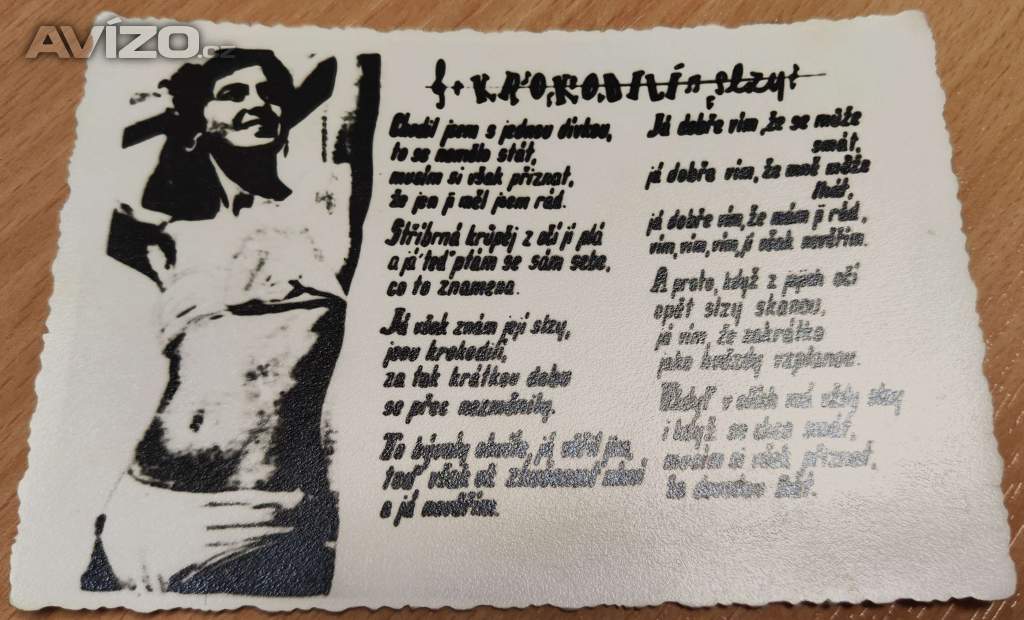 AVÍZO.cz
KROKODILÍ slzy
Chodil jsem s jednou dívkou,
to se nemělo stát,
musím si však přiznat,
že jen ji měl jsem rád.
Stříbrná krůpěj z očí jí plá
a já teď ptám se sám sebe,
co to znamena.
Já však znám její slzy,
jsou krokodílí,
za tak krátkou dobu
se přec nezměnily.
To bývaly okvílo, já věřil jsm,
teď však už
a já nevěřím.
Já dobře vím, že se může
smát,
já dobře vím, že mně může
lhát,
já dobře vím, že mám ji rád,
vím, vím, vím, jí však nevěřím.
A proto, když z jejich očí
opět slzy skanou,
já vím, že zakrátko
jako hvězdy vzplanou.
v očích má vždy slzy
i když se chce smát,
musím si však přiznat,
to dovedou lhát.